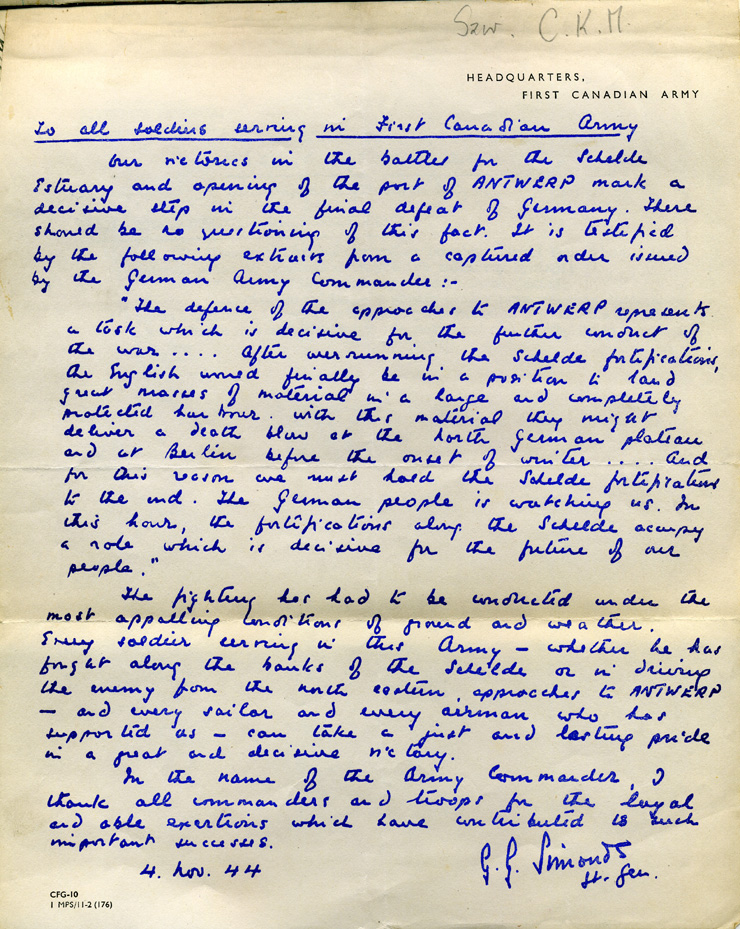 Szw. C.K.M.
HEADQUARTERS,
FIRST CANADIAN ARMY
To all soldiers serving in First Canadian Army
Our victories in the battles for the Schelde
Estuary and opening of the port of ANTWERP mark a
decisive step in the final defeat of Germany. There
should be no questioning of this fact. It is testified
by the following extracts from a captured order issued
by the German Army Commander :-
"The defence of the approaches to ANTWERP represents
a task which is decisive for the further conduct of
the war .... After overrunning the Schelde fortifications,
the English would finally be in a position to land
great masses of material in a large and completely
protected harbour. With this material they might
deliver a death blow at the North German plateau
and at Berlin before the onset of winter .... And
for this reason we must hold the Schelde fortifications
to the end. The German people is watching us. In
this hour, the fortifications along the Schelde occupy
a role which is decisive for the future of our
people."
The fighting has had to be conducted under the
most appalling conditions of ground and weather.
Every soldier serving in this Army - whether he has
fought along the banks of the Schelde or in driving
the enemy from the north eastern approaches to ANTWERP
- and every sailor and every airman who has
supported us - can take a just and lasting pride
in a great and decisive victory.
In the name of the Army Commander, I
thank all commanders and troops for the loyal
and able exertions which have contributed to such
important successes.
4. Nov. 44
G. G. Simonds
Lt. Gen.
CFG-10
1 MPS/11-2 (176)